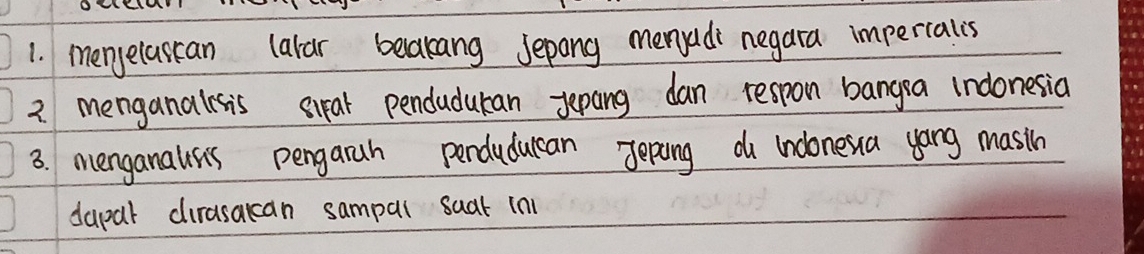 1. menjelaskan latar belakang Jepang menjadi negara imperialis
2. menganalisis sifat pendudukan Jepang dan respon bangsa indonesia
3. menganalisis pengaruh pendudukan Jepang di indonesia yang masih
dapat dirasakan sampai saat ini